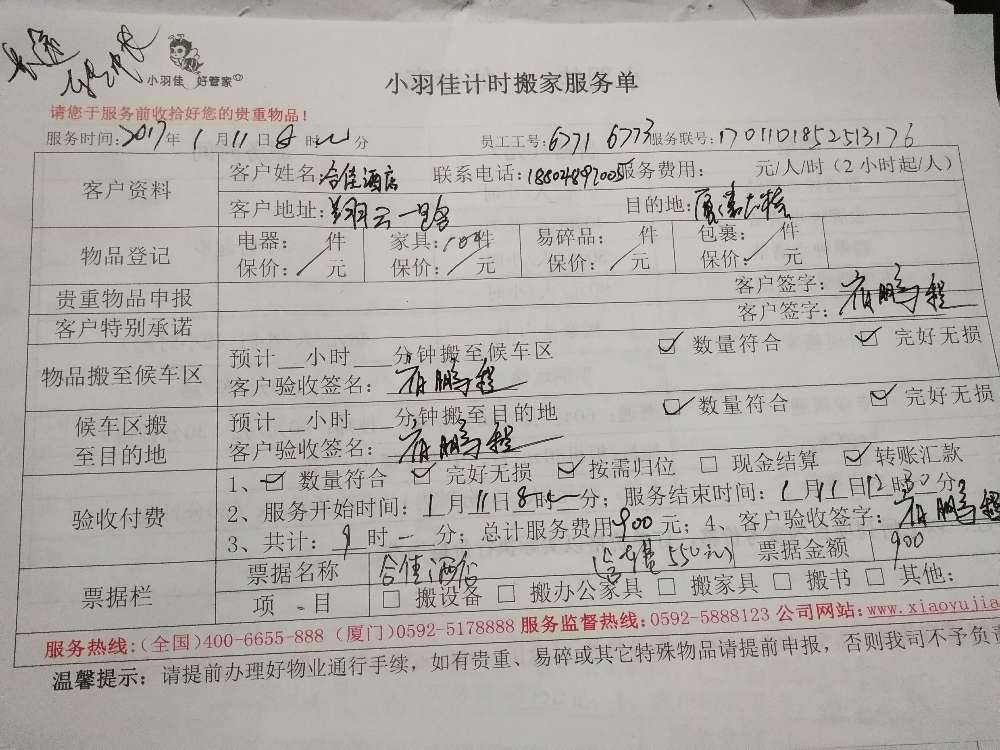 小羽佳 好管家
小羽佳计时搬家服务单
请您于服务前收拾好您的贵重物品！
服务时间：2017年1月11日8时 分 员工工号：6771 6773 服务联号：1701101852513176
客户资料 客户姓名：合佳酒店 联系电话：18804897005 服务费用： 元/人/时（2小时起/人）
客户地址：翔云一路 目的地：
物品登记 电器： 件 家具： 件 易碎品： 件 包裹： 件
保价：／元 保价：／元 保价：／元 保价：／元
贵重物品申报 客户签字：
客户特别承诺 客户签字： 鹏程
物品搬至候车区 预计__小时___分钟搬至候车区 ☑ 数量符合 ☑ 完好无损
客户验收签名： 鹏程
候车区搬至目的地 预计__小时___分钟搬至目的地 ☑ 数量符合 ☑ 完好无损
客户验收签名： 鹏程
验收付费 1、☑ 数量符合 ☑ 完好无损 ☑ 按需归位 □ 现金结算 ☑ 转账汇款
2、服务开始时间：1月11日8时 分；服务结束时间：1月11日12时30分
3、共计： 时 分；总计服务费用900元；4、客户验收签字： 鹏程
票据栏 票据名称 合佳酒店 550元） 票据金额 900
项 目 □ 搬设备 □ 搬办公家具 □ 搬家具 □ 搬书 □ 其他：
服务热线：（全国）400-6655-888（厦门）0592-5178888 服务监督热线：0592-5888123 公司网站：www.xiaoyujia
温馨提示：请提前办理好物业通行手续，如有贵重、易碎或其它特殊物品请提前申报，否则我司不予负